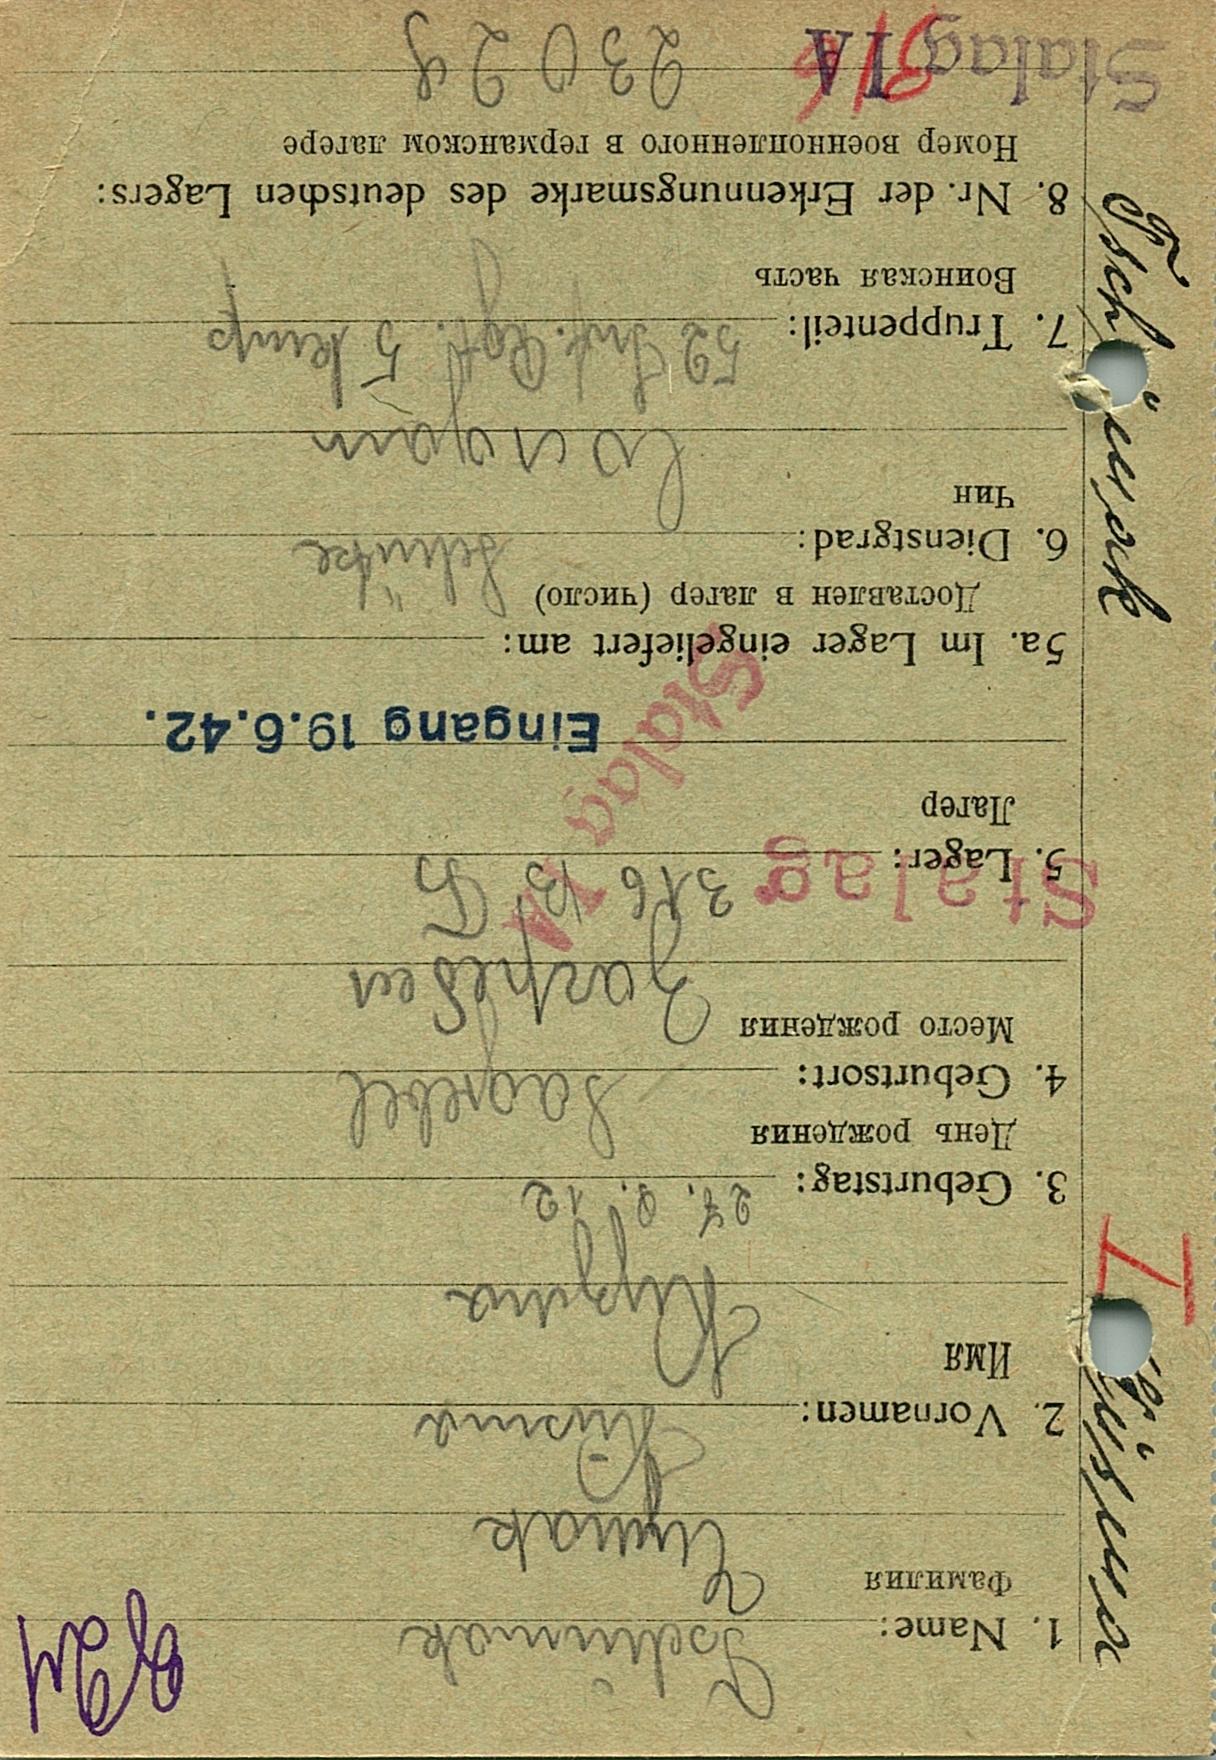 Tschumak
1. Name:
Фамилия
Чумак
Kusma
2. Vornamen:
Имя
Кузьма
27. 9. 12
3. Geburtstag:
День рождения
4. Geburtsort:
Место рождения
5. Lager: 316
Stalag
Лагер
Stalag IA
Eingang 19.6.42.
5a. Im Lager eingeliefert am:
Доставлен в лагер (число)
Schütze
6. Dienstgrad:
Чин
Солдат
52 Inf. Rgt. 5 komp
7. Truppenteil:
Воинская часть
8. Nr. der Erkennungsmarke des deutschen Lagers:
Номер военнопленного в германском лагере
Stalag IA
316
23029
Tschumak
I
Kusma